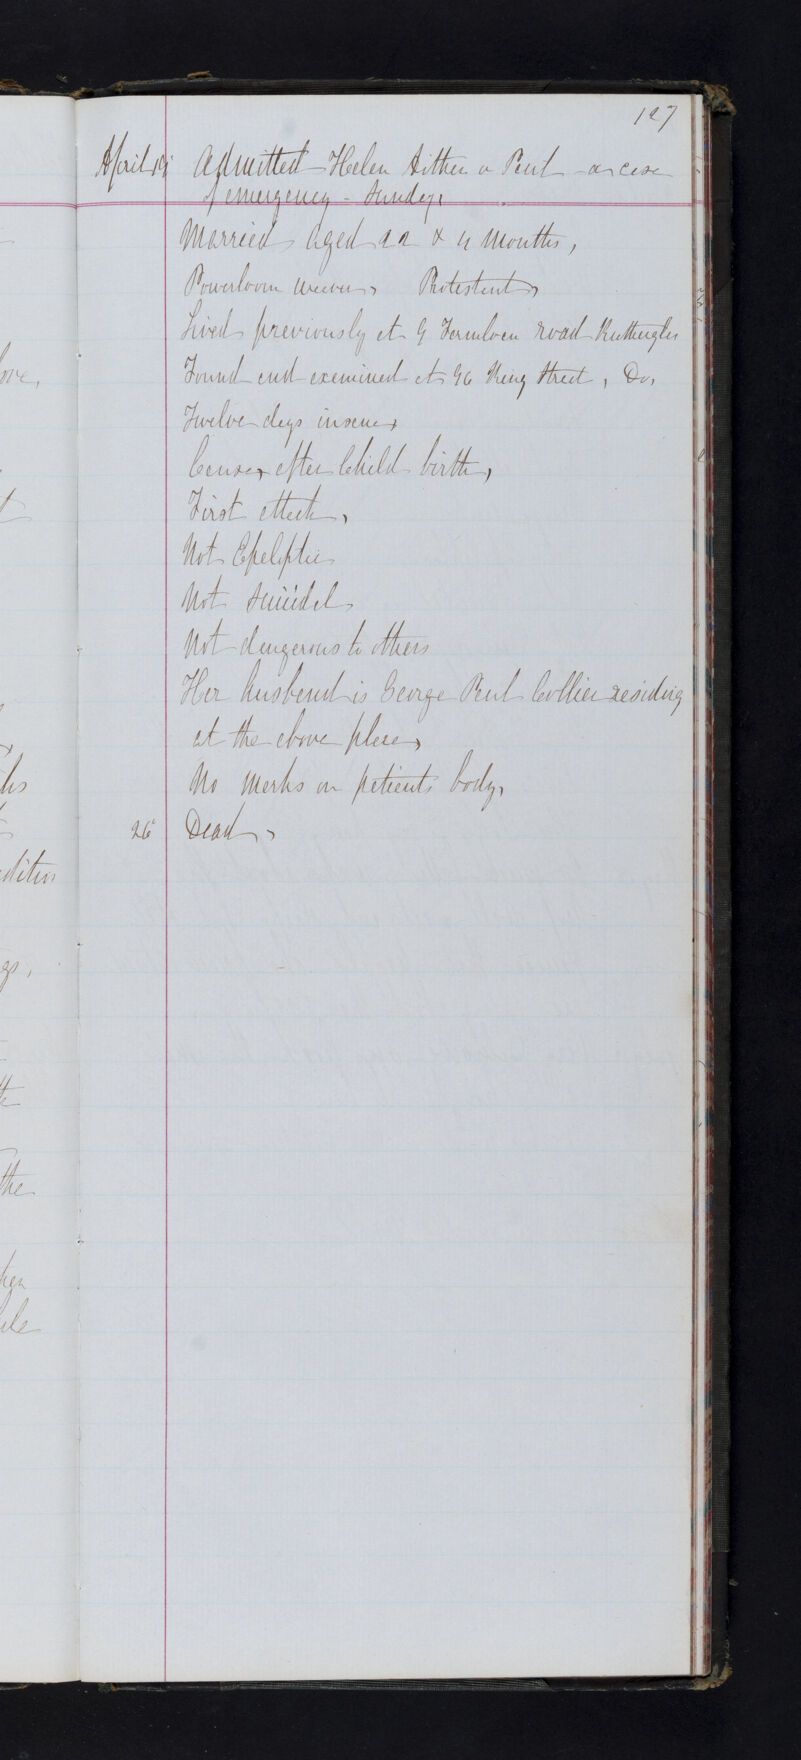 127
April Admitted Helen or Pent a case
of emergency - Sunday.
Married Aged 22 & 4 Months,
Powerloom weaver, Protestant,
Lived previously at 9 Farmloan road Rutherglen
Found and examined at 96 King Street, Do,
Twelve days insane,
Cause, after Child birth,
First attack,
Not Epeleptic
Not Suicidal
Not dangerous to others
Her husband is George Collier residing
at the above place,
No marks on patients body,
26 Dead,
ove,
the